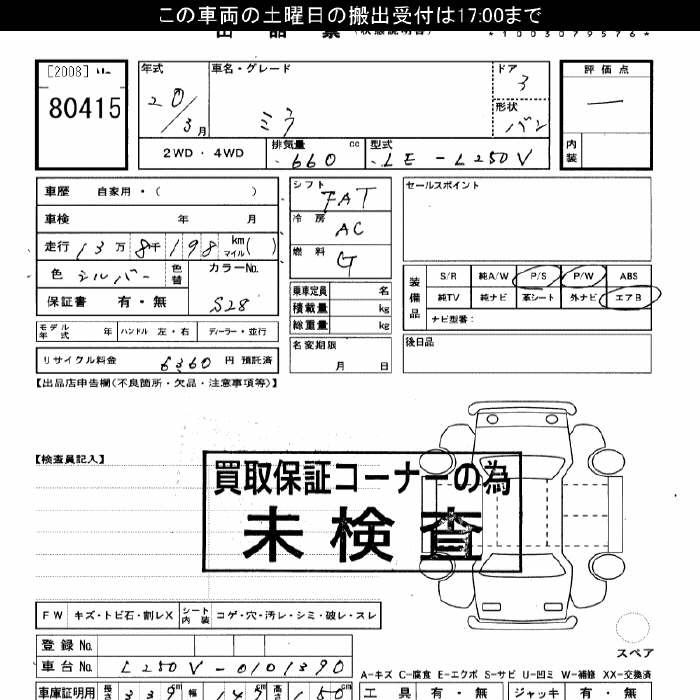 この車両の土曜日の搬出受付は17:00まで
出品票 (状態説明書)
*1003079576*
[2008]
80415
年式 20/3月
車名・グレード ミラ
ドア 3
形状 バン
評価点 ―
内装
2WD・4WD
排気量 660 cc
型式 LE-L250V
車歴 自家用・( )
車検 年 月
走行 13万8千198 km マイル( )
色 シルバー 色替
カラーNo. S28
保証書 有・無
モデル年式 年 ハンドル 左・右 ディーラー・並行
リサイクル料金 6360 円 預託済
シフト FAT
冷房 AC
燃料 G
乗車定員 名
積載量 kg
総重量 kg
名変期限 月 日
セールスポイント
装備品
S/R 純A/W P/S P/W ABS
純TV 純ナビ 革シート 外ナビ エアB
ナビ型番:
後日品
【出品店申告欄(不良箇所・欠品・注意事項等)】
【検査員記入】
買取保証コーナーの為
未検査
FW キズ・トビ石・割レX シート内装 コゲ・穴・汚レ・シミ・破レ・スレ
スペア
登録No.
車台No. L250V-0101390
A-キズ C-腐食 E-エクボ S-サビ U-凹ミ W-補修 XX-交換済
車庫証明用 長さ 339cm 幅 147cm 高さ 150cm
工具 有・無 ジャッキ 有・無